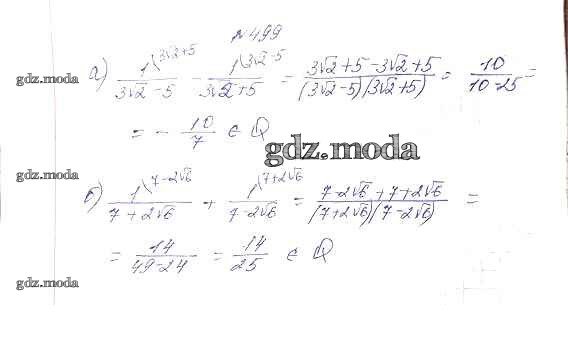 №499
а) 1\(3√2+5) / (3√2-5) - 1\(3√2-5) / (3√2+5) = (3√2+5-3√2+5) / ((3√2-5)(3√2+5)) = 10 / (10-25) =
gdz.moda
= - 10/7 ∈ Q
gdz.moda
gdz.moda
б) 1\(7-2√6) / (7+2√6) + 1\(7+2√6) / (7-2√6) = (7-2√6+7+2√6) / ((7+2√6)(7-2√6)) =
= 14 / (49-24) = 14/25 ∈ Q
gdz.moda